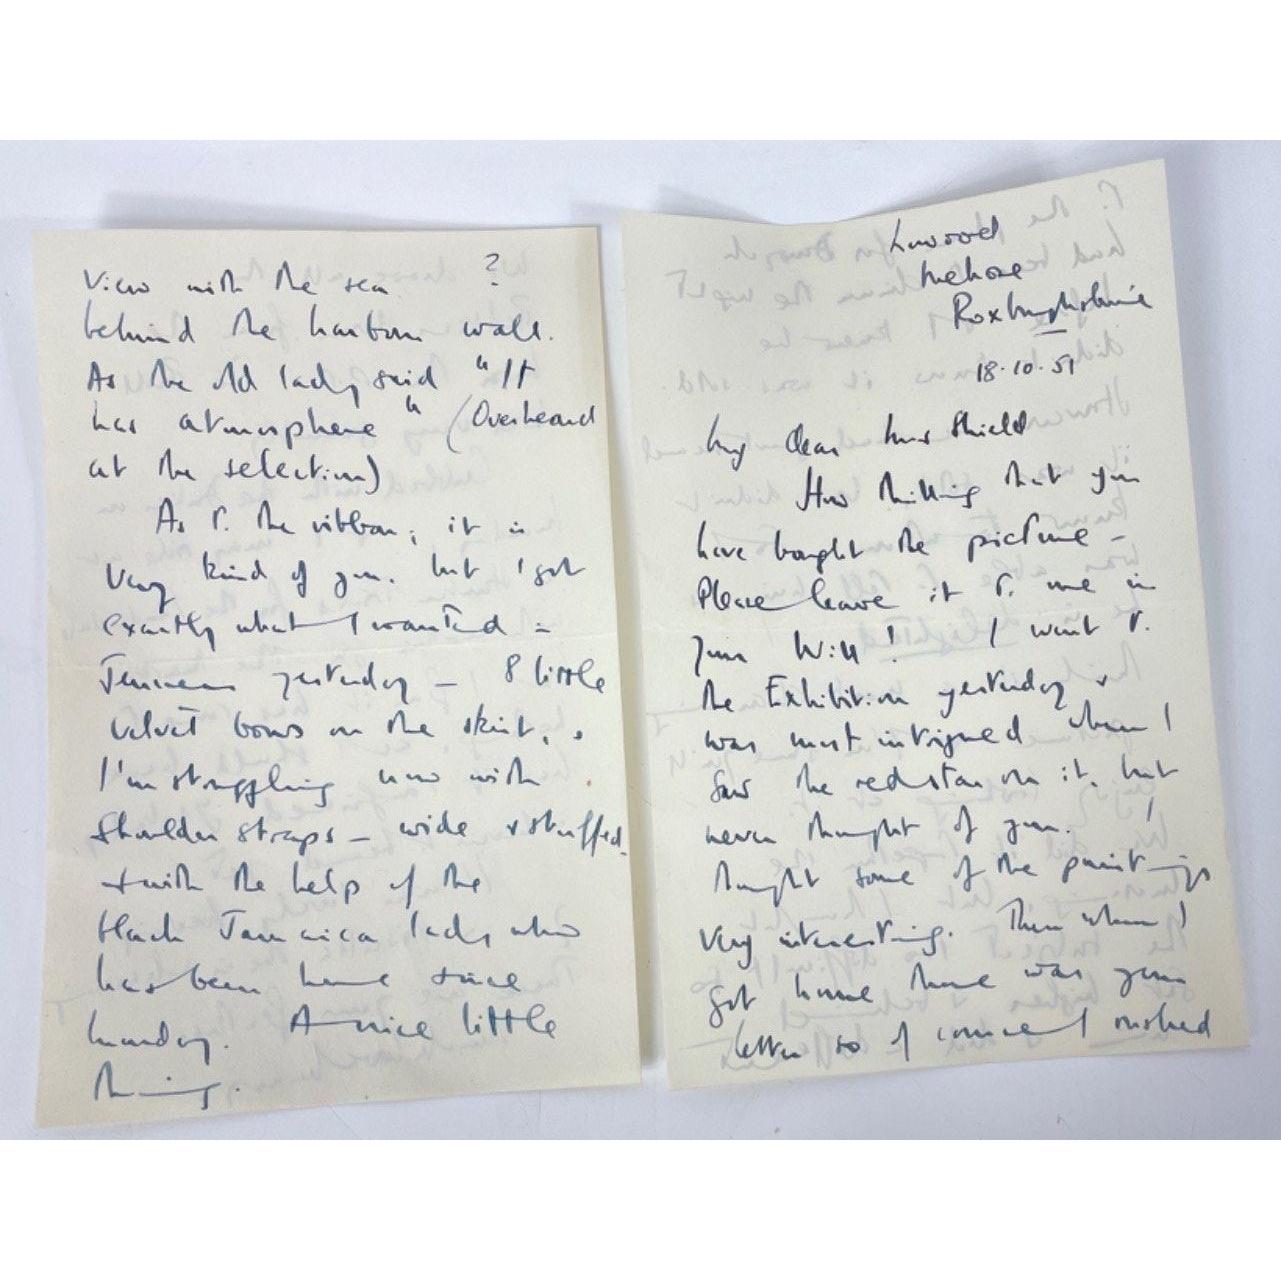 Linwood
Melrose
Roxburghshire
18.10.51
My dear Miss Shield
How thrilling that you
have bought the picture -
Please leave it to me in
your Will! I went to
the Exhibition yesterday &
was most intrigued when I
saw the red star on it, but
never thought of you. I
thought some of the paintings
very interesting. Then when I
got home there was your
letter so of course I rushed
View with the sea ?
behind the harbour wall.
As the old lady said "It
has atmosphere" (Overheard
at the selection)
As to the ribbon, it is
very kind of you, but I got
exactly what I wanted -
yesterday - 8 little
velvet bows on the skirt, &
I'm struggling now with
shoulder straps - wide & stuffed,
& with the help of the
black Jamaica lady who
has been here since
Monday. A nice little
thing.